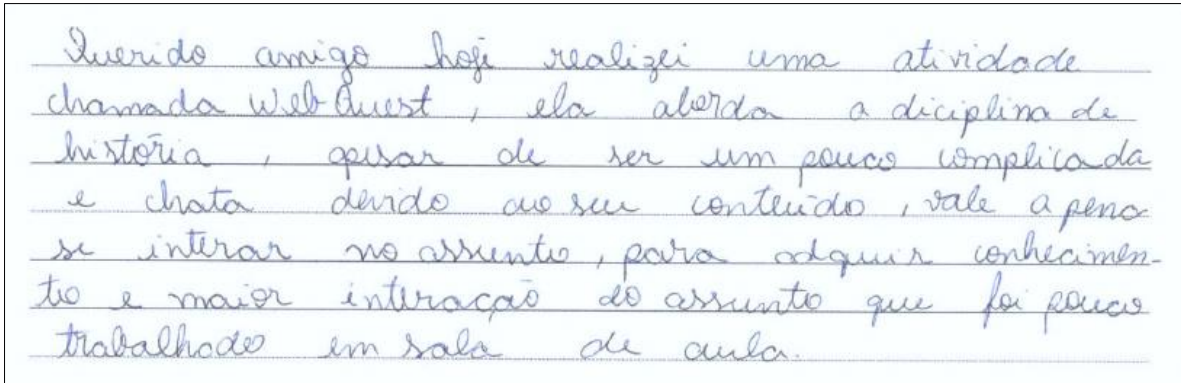 Querido amigo hoje realizei uma atividade
chamada WebQuest, ela aborda a diciplina de
história, apesar de ser um pouco complicada
e chata devido ao seu conteúdo, vale a pena
se interar no assunto, para adquir conhecimen-
to e maior interação do assunto que foi pouco
trabalhado em sala de aula.